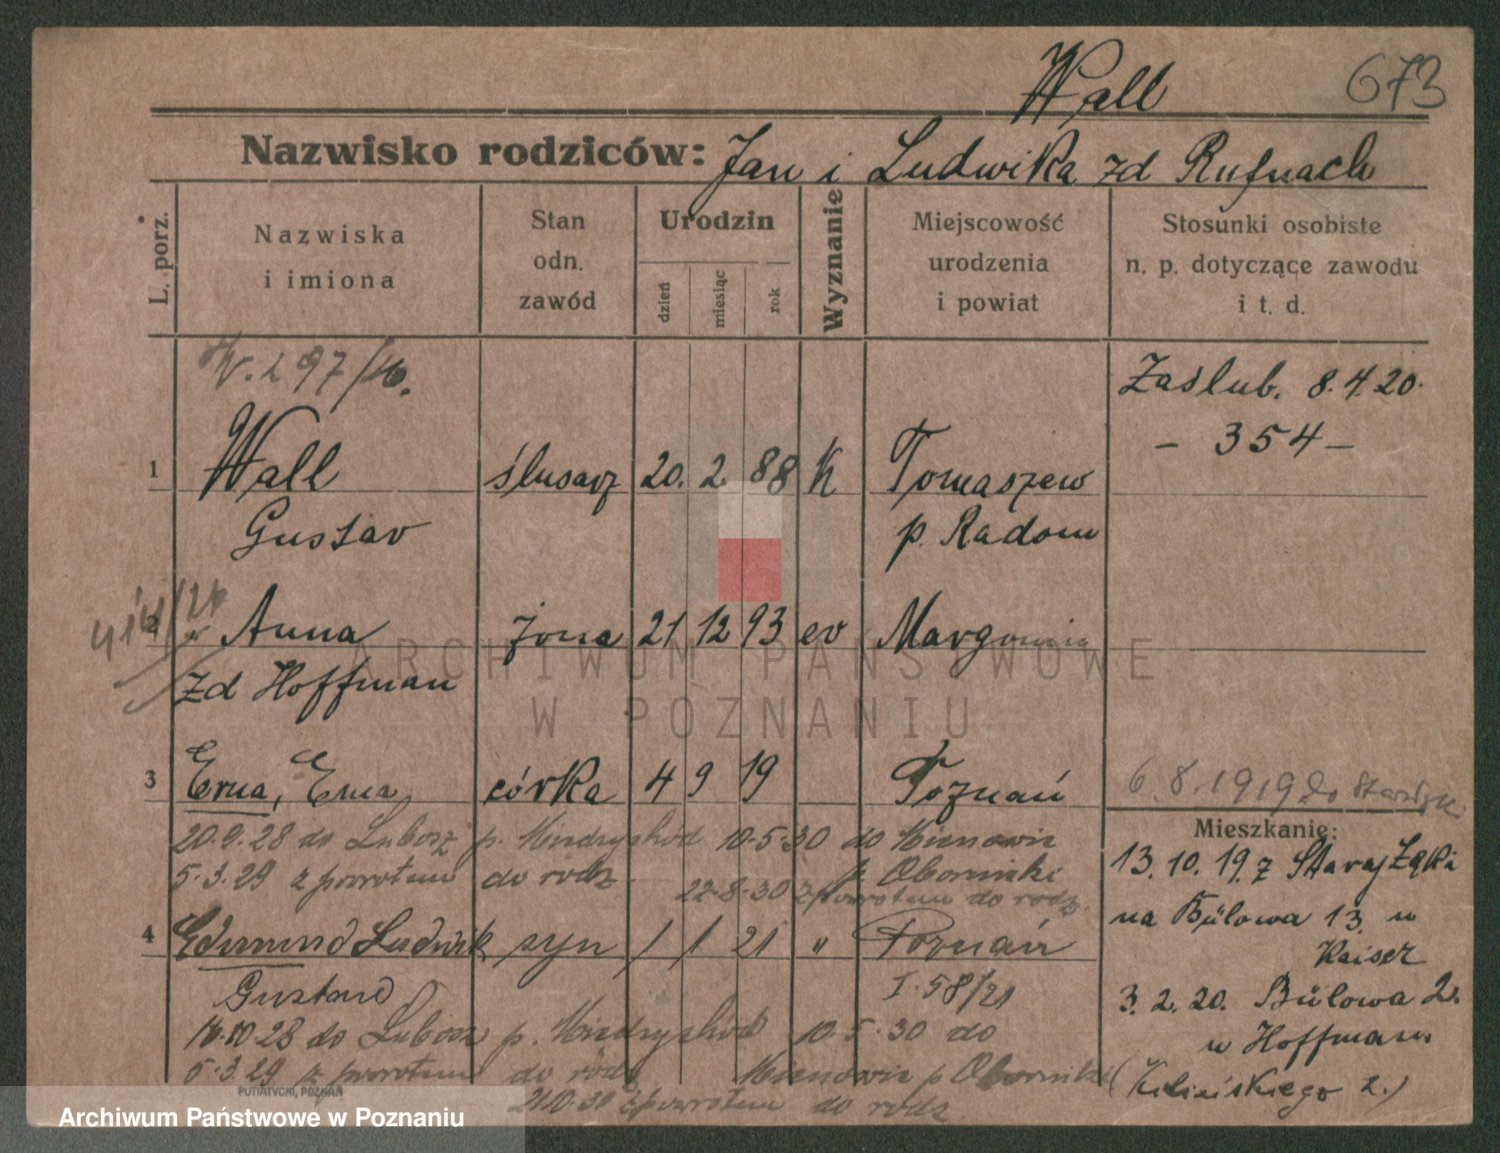 Wall 673
Nazwisko rodziców: Jan i Ludwika zd Rufnach
L. porz.
Nazwiska
i imiona
Stan
odn.
zawód
Urodzin
dzień
miesiąc
rok
Wyznanie
Miejscowość
urodzenia
i powiat
Stosunki osobiste
n. p. dotyczące zawodu
i t. d.
Zaślub. 8.4.20.
- 354 -
1 Wall ślusarz 20. 2. 88 K Tomaszew
Gustav p. Radom
2 " Anna żona 21 12 93 ev Margonin
zd Hoffman
3 Erna, Erna córka 4 9 19 Poznań
6.8.1919
20.9.28 do Lubosz p. Międzychód 10.5.30 do
5.3.29 z powrotem do rodz. 22.8.30 z powrotem do rodz.
p Oborniki
4 Edmund Ludwik syn 1 1 21 " Poznań
Gustaw I.58/21
do Lubosz p. Międzychód 10.5.30 do
5.3.29 z powrotem do rodz p Oborniki
z powrotem do rodz
Mieszkanie:
13.10.19. z Staraj Łęki
na Bülowa 13 u
Kaiser
3.2.20. Bülowa 2.
u Hoffman
(Kilińskiego 2.)
PUTIATYCKI, POZNAŃ
ARCHIWUM PAŃSTWOWE
W POZNANIU
Archiwum Państwowe w Poznaniu